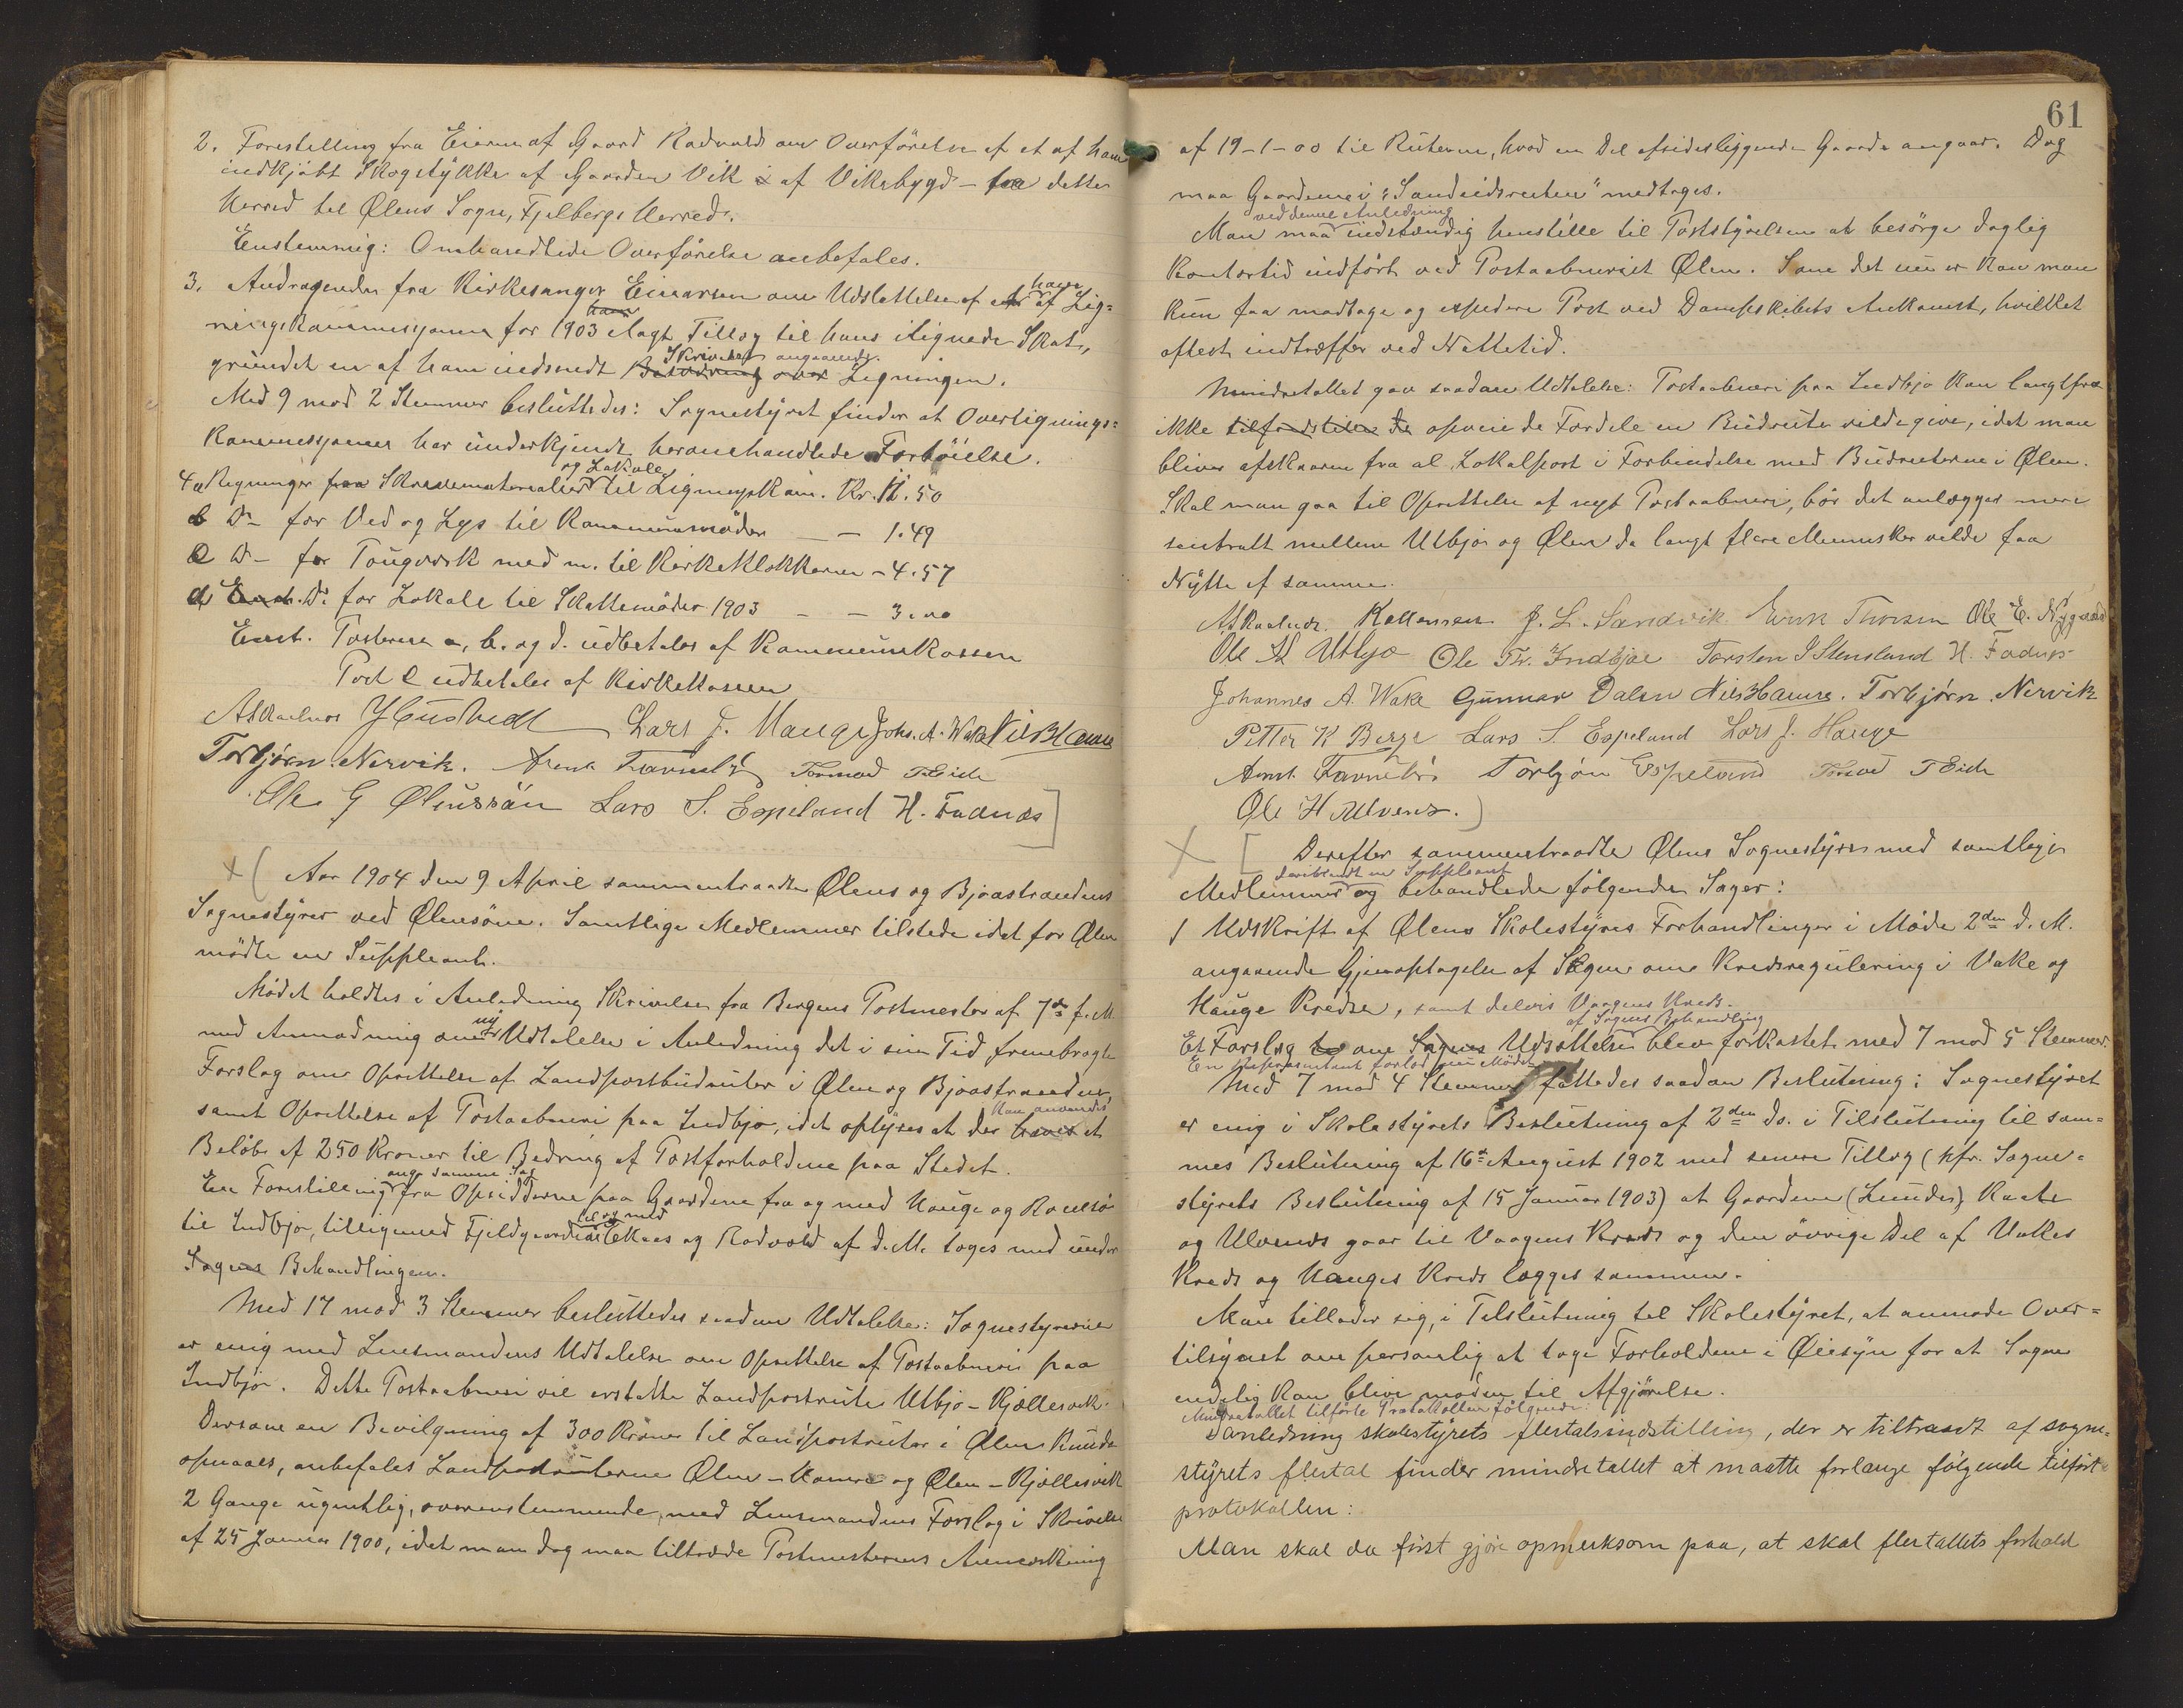 2. Forestilling fra Eieren af Gaard Radvald om Overførelse af et af ham
indkjøbt Skogstykke af Gaarden Vik i af Vikebygd – fra dette
Herred til Ølens Sogn, Fjelbergs Herred.
Enstemmig: Omhandlede Overførelse anbefales.
3. Andragende fra Kirkesanger Einarsen om Udslettelse af et ham af Lig=
ningskommissjonen for 1903 ham ilagt Tillæg til hans ilignede Skat,
grundet en af ham indsendt Skrivelse angaaende Ligningen.
Med 9 mod 2 Stemmer besluttedes: Sognestyret finder at Overlignings=
kommissjonen har underkjendt heromhandlede Forhøielse.
4 a Regninger fra Skrivematerialier og Lokale til Ligningskom. Kr. 11.50
b Do for Ved og Lys til Kommunemøder – – 1.49
c Do for Tougverk med m. til Kirkeklokkerne – 4.57
d Do for Lokale til Skattemøder 1903 – – 3.00
Enst. Posterne a, b. og d. udbetales af Kommunekassen
Post c udbetales af Kirkekassen
Lars J. Hauge Johs. A. Wake Nils Hamre
Torbjørn Nervik. Tormod T Eide
Ole G Ølenssøn Lars S. Espeland H. Fadnæs
Aar 1904 den 9 April sammentraadte Ølens og Bjoastrandens
Sognestyrer ved Ølensøen. Samtlige Medlemmer tilstede idet for Ølen
mødte en Suppleant.
Mødet holdtes i Anledning Skrivelse fra Bergens Postmester af 7de f. M
med Anmodning om ny Udtalelse i Anledning det i sin Tid frembragte
Forslag om Oprettelse af Landpostbudruter i Ølen og Bjoastranden,
samt Oprettelse af Postaabneri paa Indbjo, idet oplyses at der kan anvendes et
Beløb af 250 Kroner til Bedring af Postforholdene paa Stedet.
En Forestilling ang. samme Sag fra Opsidderne paa Gaardene fra og med Hauge og
til Indbjo, tilligemed Fjeldgaardene til og med og Radvold af d. M. toges med under
Sagens Behandlingen.
Med 17 mod 3 Stemmer besluttedes saadan Udtalelse: Sognestyrerne
er enig med Lensmandens Udtalelse om Oprettelse af Postaabneri paa
Indbjo. Dette Postaabneri vil erstatte Landpostrute Utbjo – Kjællesvik.
Dersom en Bevilgning af 300 Kroner til Landpostruter i Ølen kunde
opnaaes, anbefales Landpostruterne Ølen – Hamre og Ølen – Kjællesvik
2 Gange ugentlig, overensstemmende med Lensmandens Forslag i Skrivelse
af 25 Januar 1900, idet man dog maa tiltræde Postmesterens Anmerkning
61
af 19-1-00 til Ruterne, hvad en Del afsidesliggende Gaarde angaar. Dog
maa Gaardene i "Sandeidsruten" medtages.
Man maa ved denne Anledning indstændig henstille til Poststyrelsen at besørge daglig
Kontortid indført ved Postaabneriet Ølen. Som det nu er kan man
kun faa modtage og expedere Post ved Dampskibets Ankomst, hvilket
oftest indtræffer ved Nattetid.
Mindretallet gav saadan Udtalelse: Postaabneri paa Indbjo kan langtfra
ikke tilfredsstille de opveie de Fordele en Budrute vilde give, idet man
bliver afskaaren fra al Lokalpost i Forbindelse med Budruterne i Ølen.
Skal man gaa til Oprettelse af nyt Postaabneri, bør det anlægges mere
sentralt mellem Utbjo og Ølen da langt flere Mennesker vilde faa
Nytte af samme.
J. L. Sandvik Erik Thorsen Ole E. Nygaard
Ole A Utbjo Ole Th. Indbjoe Torsten J Stensland H. Fadnes
Johannes A. Wake Gunnar Dalen Nils Hamre. Torbjørn Nervik
Petter K Berge Lars S. Espeland Lars J. Hauge
Torbjøn Espeland T Eide
Ole H Ulvenes.
Derefter sammentraadte Ølens Sognestyre med samtlige
Medlemmer deriblandt en Suppleant og behandlede følgende Sager:
1 Udskrift af Ølens Skolestyres Forhandlinger i Møde 2den d. M.
angaaende Gjenoptagelse af Sagen om Kredsregulering i Vake og
Hauge Kredse, samt delvis Vaagens Kreds.
Et Forslag om Udsættelse af Sagens Behandling blev forkastet med 7 mod 5 Stemmer.
En Repræsentant forlod nu Mødet
Med 7 mod 4 Stemmer fattedes saadan Beslutning: Sognestyret
er enig i Skolestyrets Beslutning af 2den ds. i Tilslutning til sam=
mes Beslutning af 16de August 1902 med senere Tillæg (kfr. Sogne=
styrets Beslutning af 15 Januar 1903) at Gaardene (Lunde)
og Ulvenes gaar til Vaagens Kreds og den øvrige Del af Vakes
Kreds og Hauges Kreds lægges sammen.
Man tillader sig, i Tilslutning til Skolestyret, at anmode Over=
tilsynet om personlig at tage Forholdene i Øiesyn for at Sagen
endelig kan blive moden til Afgjørelse.
Mindretallet tilførte Protokollen følgende:
I anledning skolestyrets flertalsindstilling, der er tiltraadt af sogne=
styrets flertal finder mindretallet at maatte forlange følgende tilført
protokollen:
Man skal da først gjøre opmerksom paa, at skal flertallets forhold